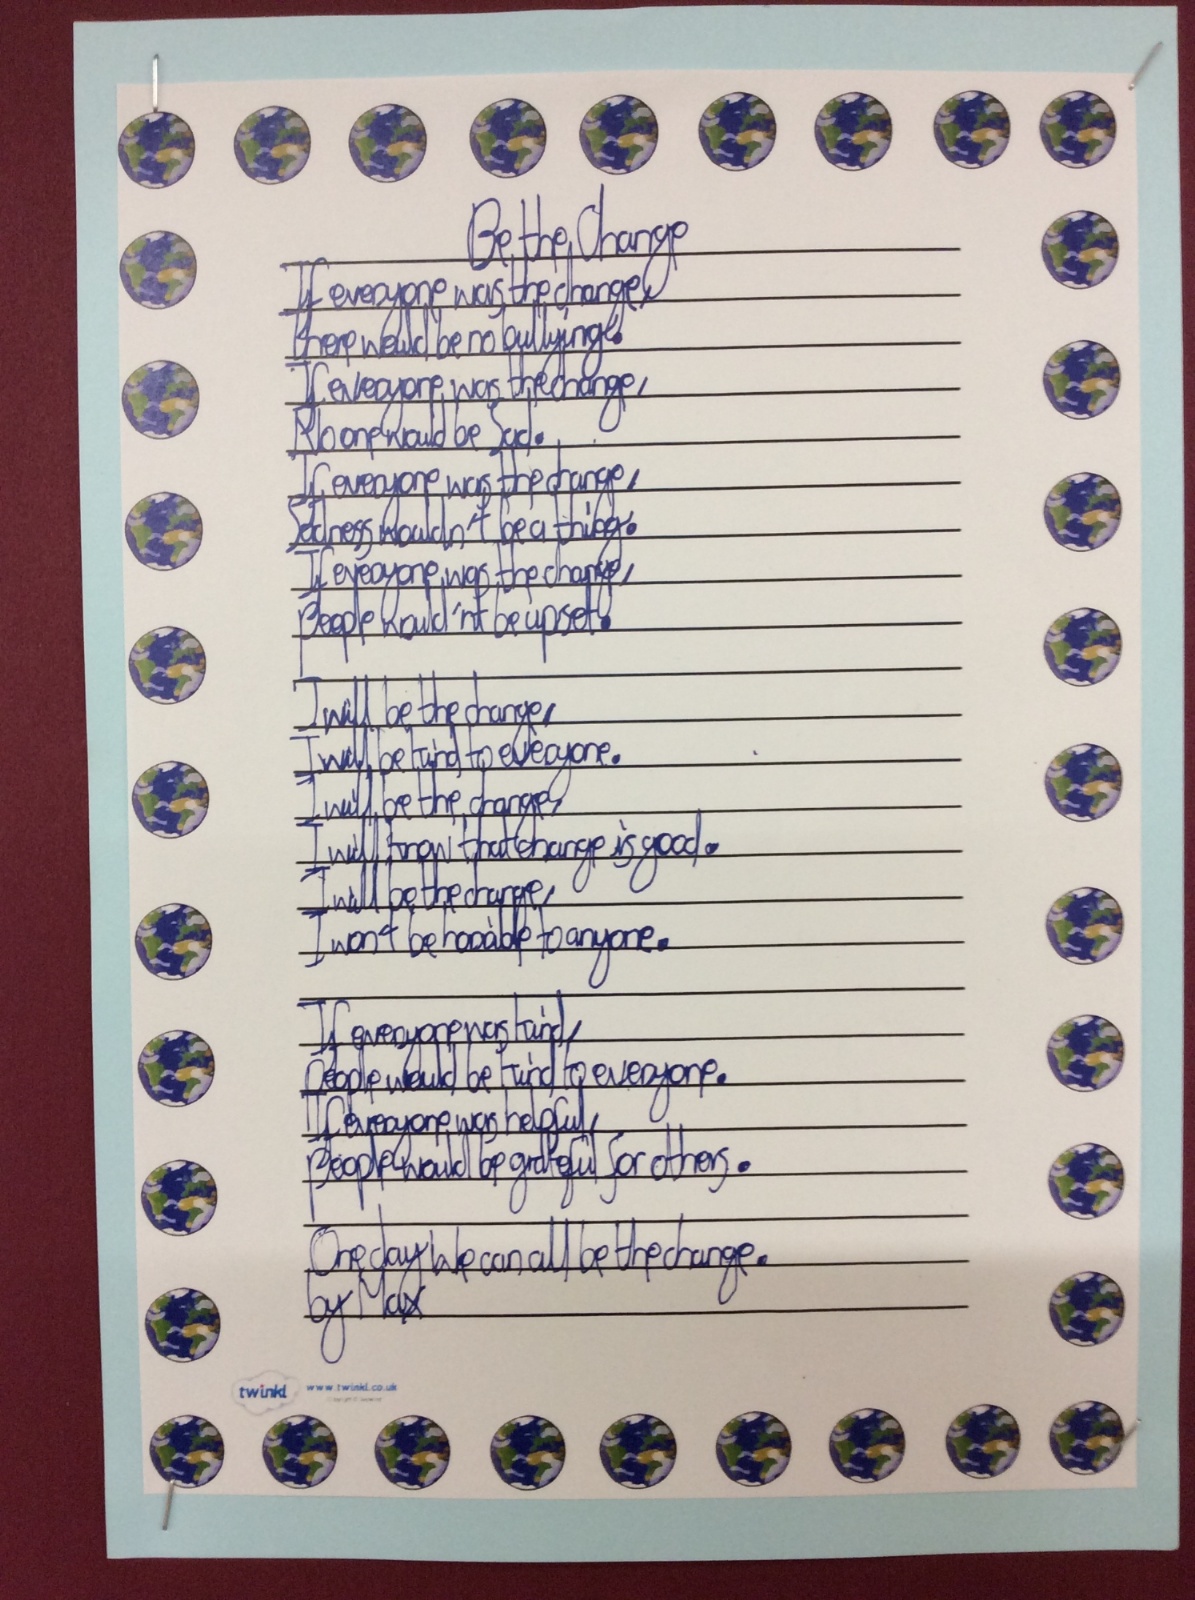 Be the Change
If everyone was the change,
there would be no bullying.
If everyone was the change,
No one would be Sad.
If everyone was the change,
Sadness wouldn't be a thing.
If everyone was the change,
People would'nt be upset.
I will be the change,
I will be kind to everyone.
I will be the change,
I will know that change is good.
I will be the change,
I won't be horrable to anyone.
If everyone was kind,
People would be kind to everyone.
If everyone was helpful,
People would be grateful for others.
One day We can all be the change.
by Max
twinkl www.twinkl.co.uk